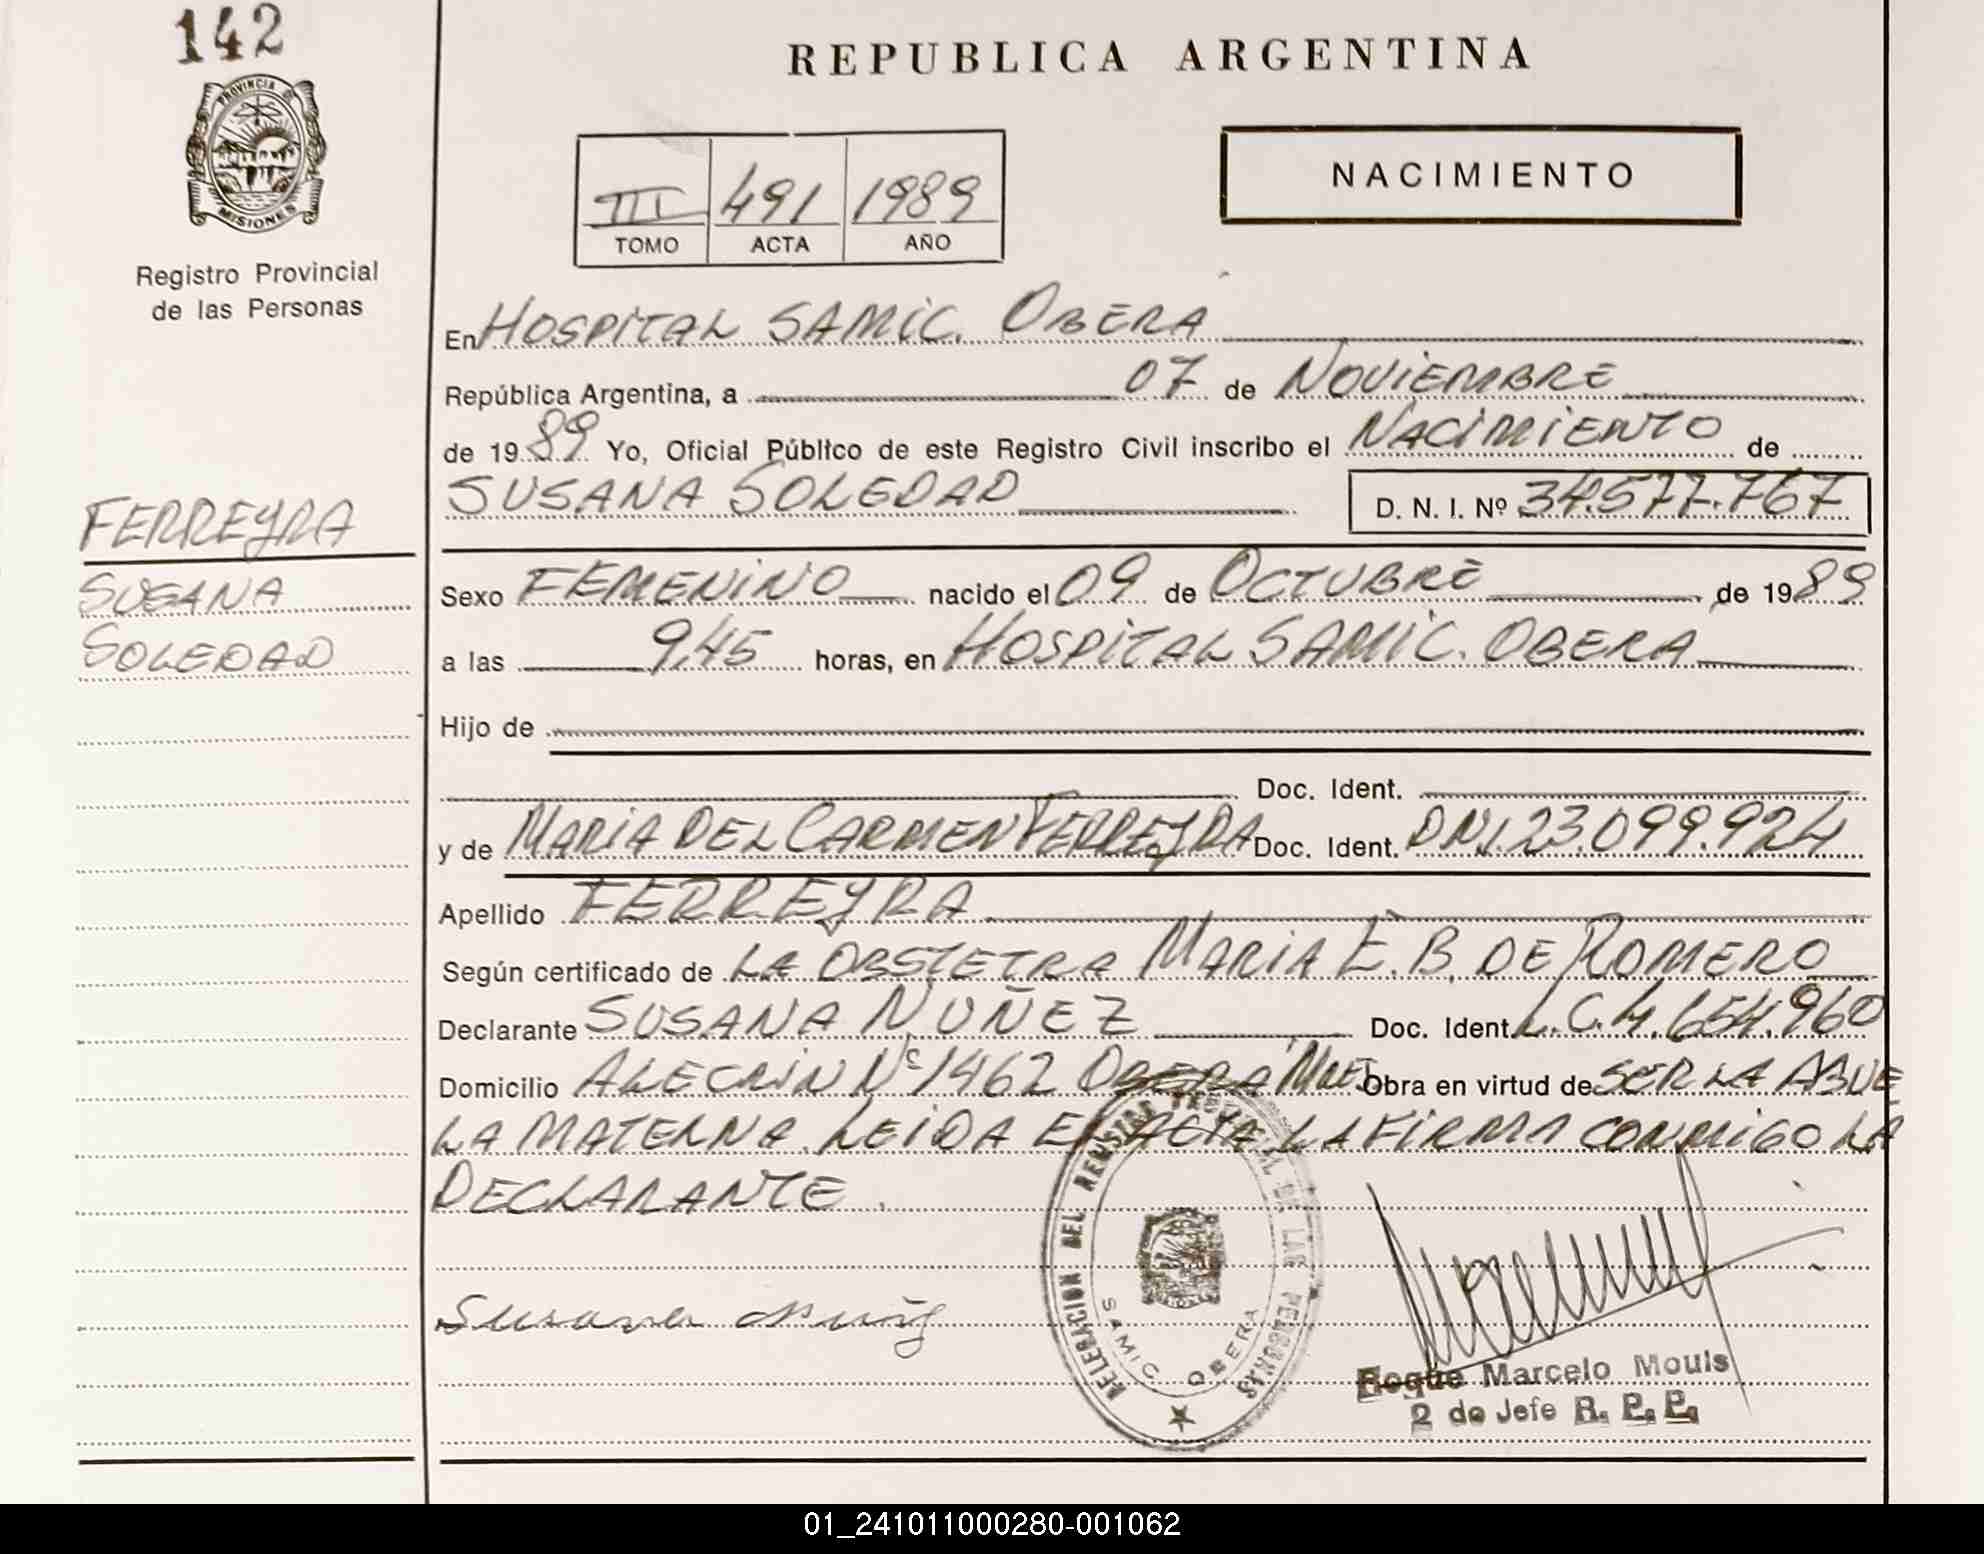 142
PROVINCIA D
MISIONES
Registro Provincial
de las Personas
FERREYRA
SUSANA
SOLEDAD
REPUBLICA ARGENTINA
III 491 1989
TOMO ACTA AÑO
NACIMIENTO
En HOSPITAL SAMIC. OBERA
República Argentina, a 07 de NOVIEMBRE
de 1989 Yo, Oficial Público de este Registro Civil inscribo el NACIMIENTO de
SUSANA SOLEDAD D. N. I. Nº 34.577.767
Sexo FEMENINO nacido el 09 de OCTUBRE de 1989
a las 9,45 horas, en HOSPITAL SAMIC. OBERA
Hijo de
Doc. Ident.
y de MARIA DEL CARMEN FERREYRA Doc. Ident. DNI.23.099.924
Apellido FERREYRA
Según certificado de LA OBSTETRA MARIA E. B. DE ROMERO
Declarante SUSANA NUÑEZ Doc. Ident. L.C.4.654.960
Domicilio ALECRIN Nº 1462 OBERA Mnes Obra en virtud de SER LA ABUE
LA MATERNA. LEIDA EL ACTA LA FIRMA CONMIGO LA
DECLARANTE.
DELEGACION DEL REGISTRO PROVINCIAL DE LAS PERSONAS
SAMIC OBERA
Susana Nuñez
Roque Marcelo Mouls
2 do Jefe R. P. P.
01_241011000280-001062